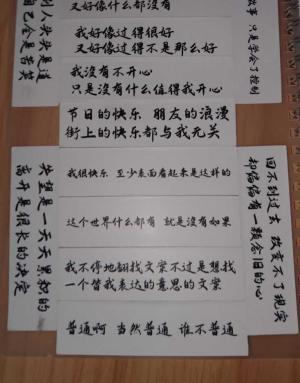 又好像什么都没有
我好像过得很好
又好像过得不是那么好
我没有不开心
只是没有什么值得我开心
节日的快乐 朋友的浪漫
街上的快乐都与我无关
我很快乐 至少表面看起来是这样的
这个世界什么都有 就是没有如果
我不停地翻找文案不过是想找
一个替我表达的意思的文案
普通啊 当然普通 谁不普通
别人头头是道
自己全是苦笑
故事 只是学会了控制
失望是一天天累积的
离开是很长的决定
回不到过去 改变不了现实
却偏偏有一颗念旧的心